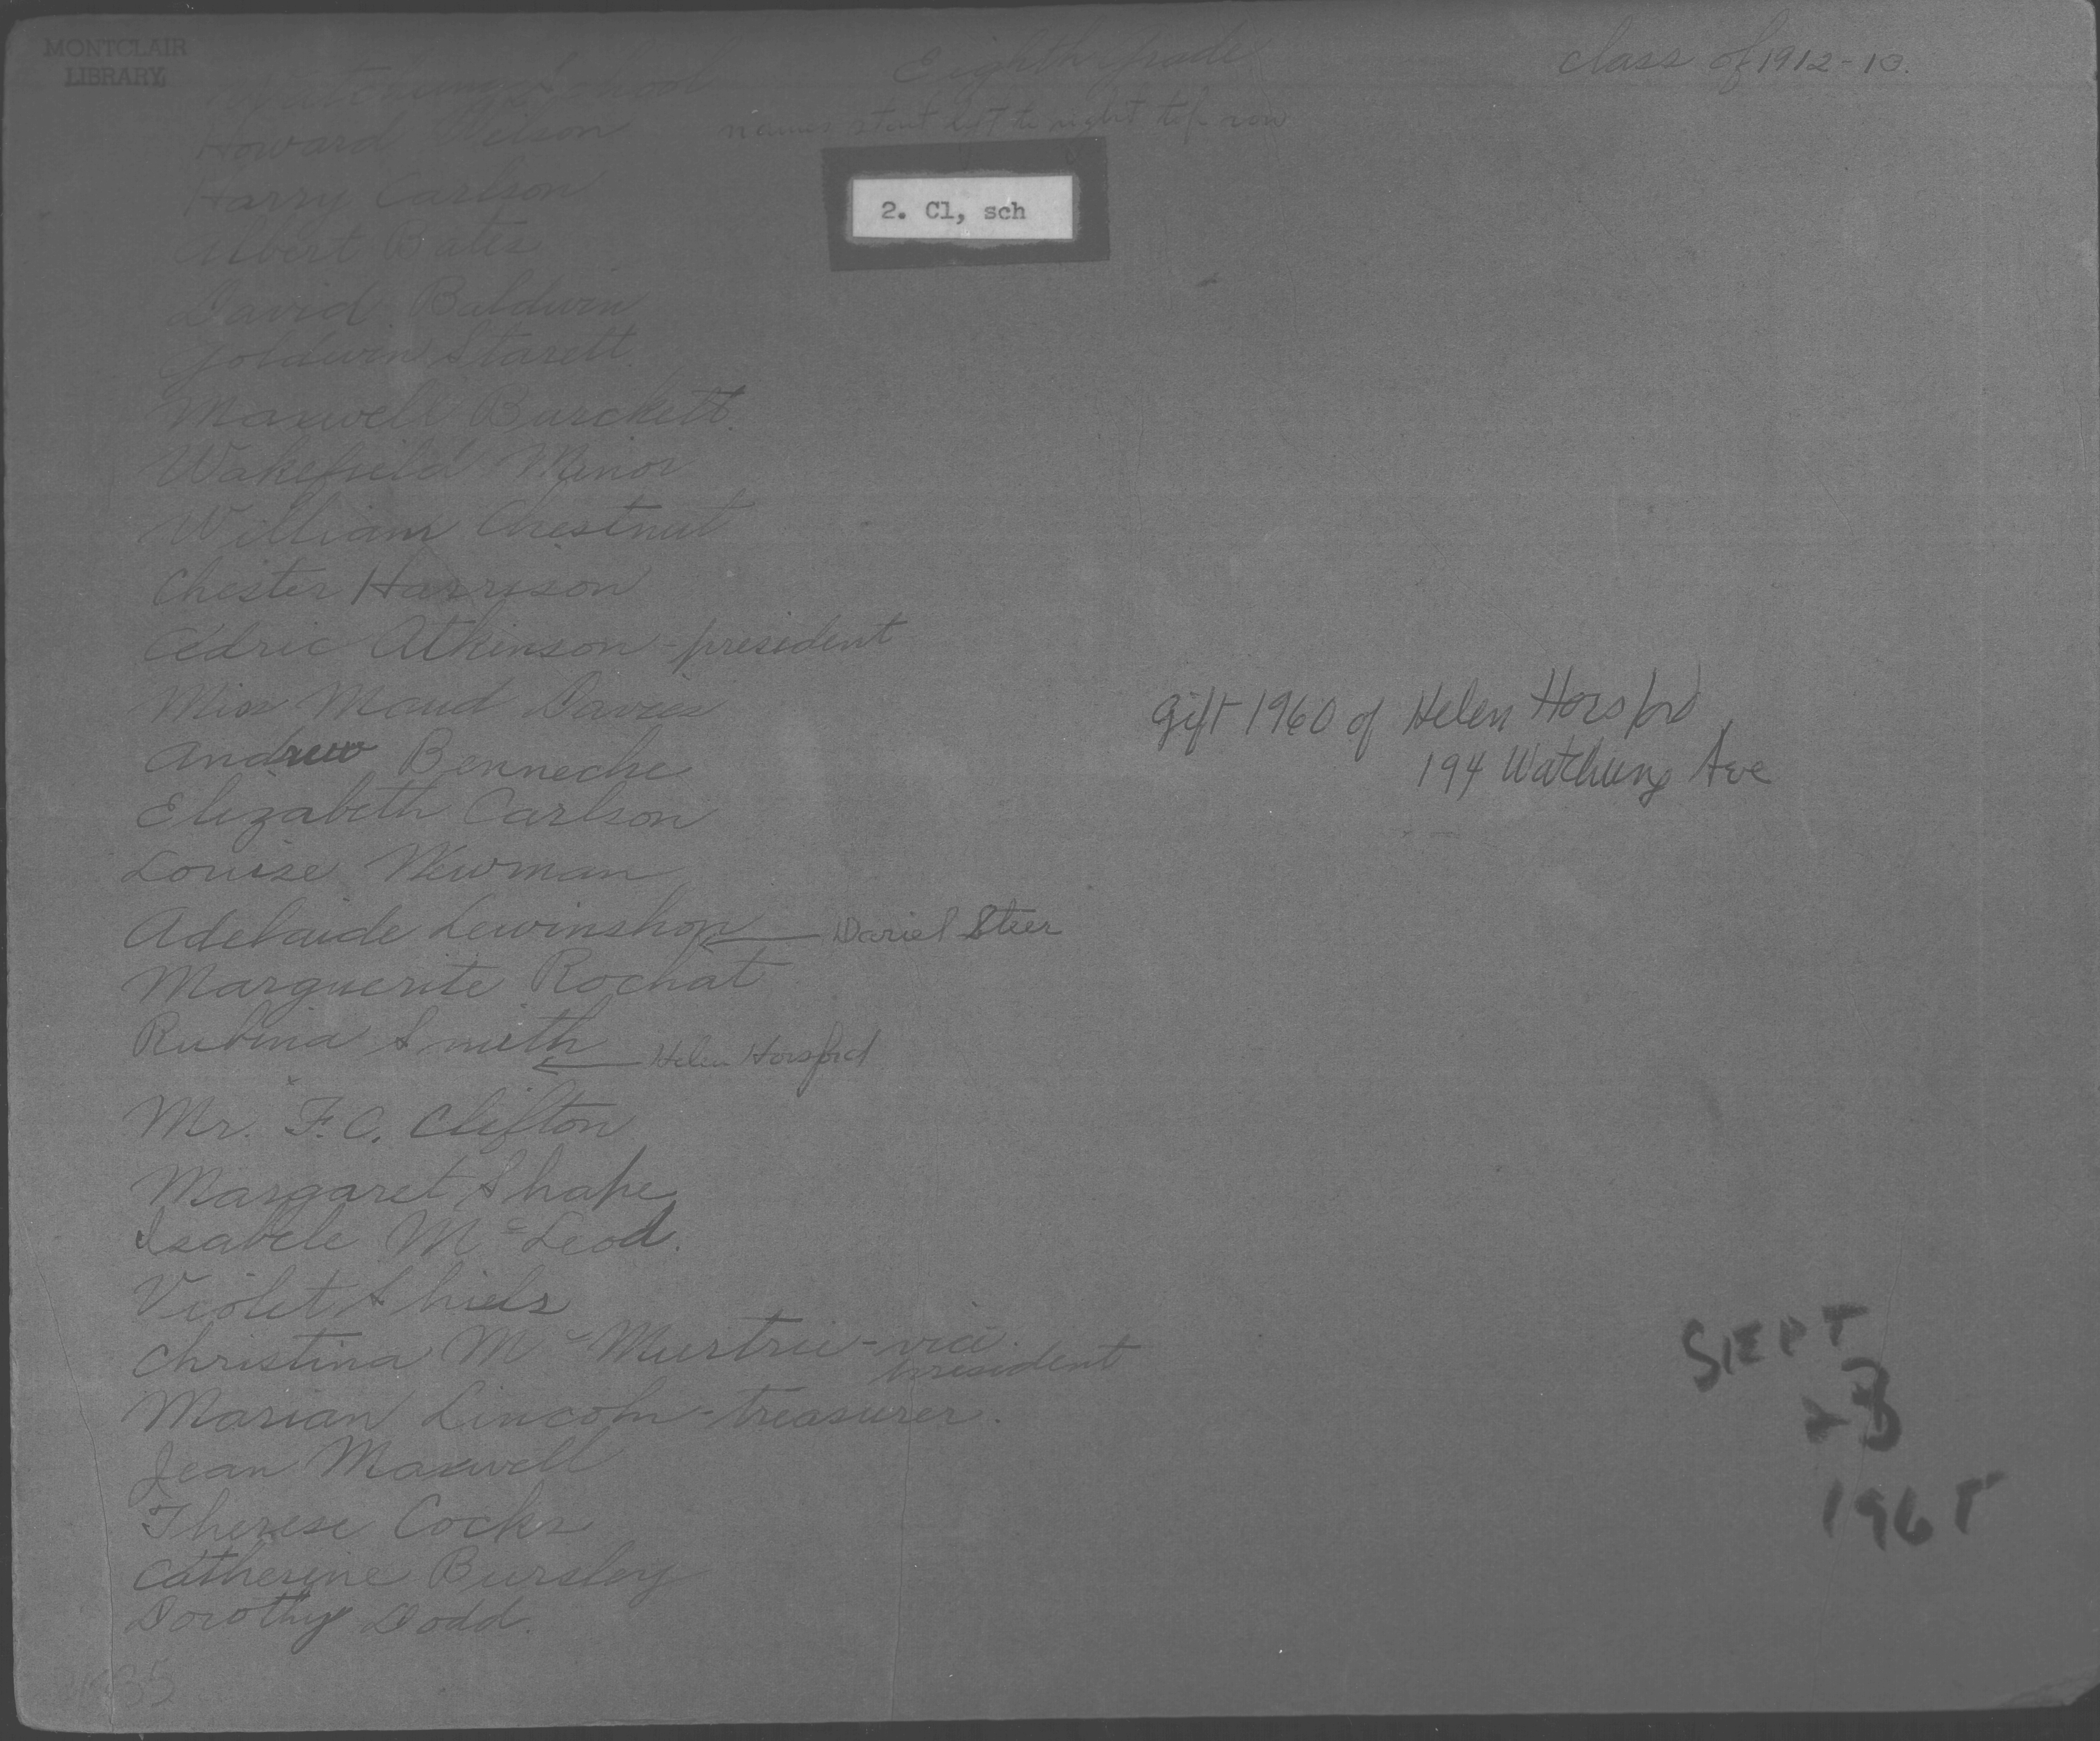 MONTCLAIR
LIBRARY
Watchung School Eighth Grade class of 1912-13.
names start left to right top row
2. Cl, sch
Howard Wilson
Harry Carlson
Albert Bates
David Baldwin
Goldwin Starett
Maxwell Burckett.
Wakefield Minor
William Chestnut
Chester Harrison
Cedric Atkinson - president
Miss Maud Davies
Andrew Bennecke
Elizabeth Carlson
Louise Newman
Adelaide Lewinshon ← Dariel Steer
Marguerite Rochat
Rubina Smith
← Helen Horsford
Mr. F. C. Clifton
Margaret Shape
Isabele McLeod.
Violet Shiels
Christina McMurtrie - vice
president
Marian Lincoln - treasurer.
Jean Maxwell
Therese Cocks
Catherine Bursley
Dorothy Dodd.
Gift 1960 of Helen Horsford
194 Watchung Ave
SEPT
1965